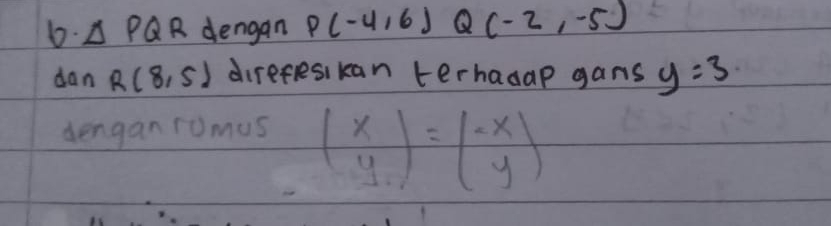 b. Δ PQR dengan P(-4,6) Q(-2,-5)
dan R(8,5) direfresikan terhadap garis y=3.
dengan rumus (x/y) = (-x/y)